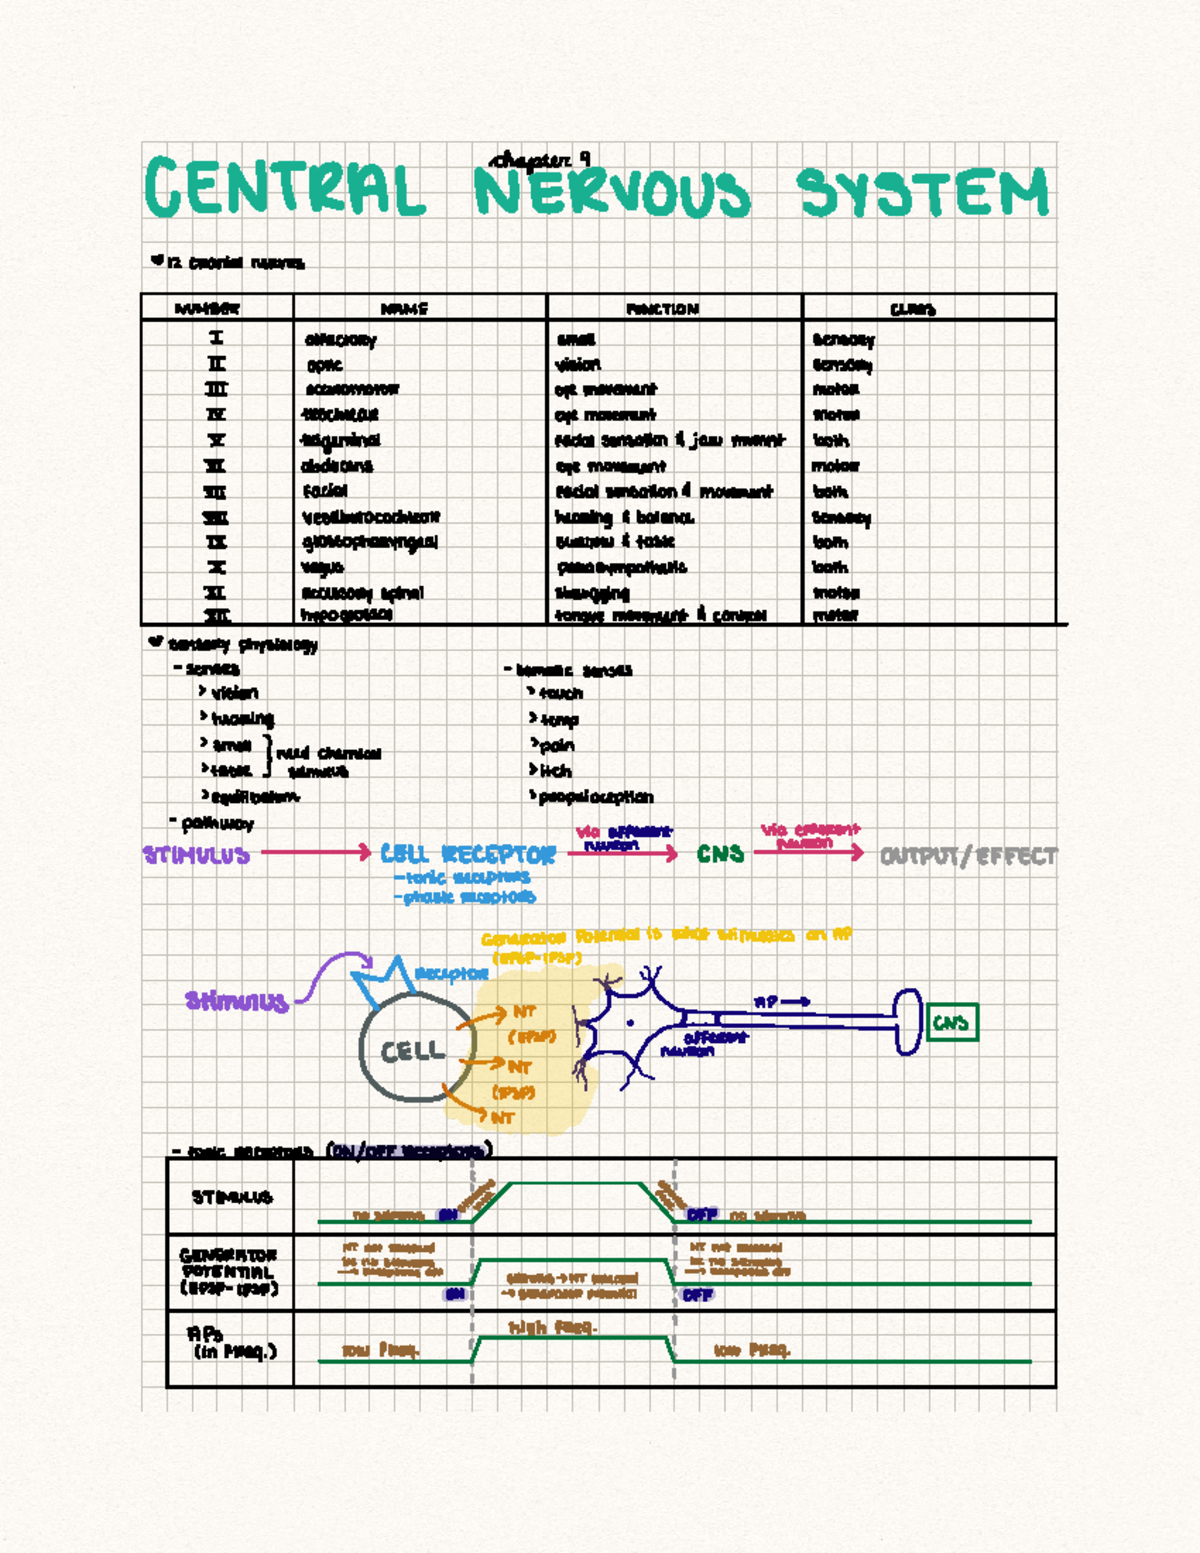 chapter 9
CENTRAL NERVOUS SYSTEM
12 cranial nerves
NUMBER NAME FUNCTION CLASS
I olfactory smell sensory
II optic vision sensory
III occulomotor eye movement motor
IV trochlear eye movement motor
V trigeminal facial sensation & jaw mvmnt both
VI abducens eye movement motor
VII facial facial sensation & movement both
VIII vestibulocochlear hearing & balance sensory
IX glossopharyngeal swallow & taste both
X vagus parasympathetic both
XI accessory spinal shrugging motor
XII hypoglossal tongue movement & control motor
sensory physiology
- senses - somatic senses
> vision > touch
> hearing > temp
> smell > pain
> taste > itch
need chemical
stimulus
> equilibrium > proprioception
- pathway
via afferent neuron via efferent neuron
STIMULUS CELL RECEPTOR CNS OUTPUT/EFFECT
- tonic receptors
- phasic receptors
Generator Potential is what stimulates an AP
(EPSP-IPSP)
Receptor
Stimulus
CELL
NT
(EPSP)
NT
(IPSP)
NT
AP →
afferent
neuron
CNS
- tonic receptors (ON/OFF receptors)
STIMULUS
no stimulus ON OFF no stimulus
GENERATOR
POTENTIAL
(EPSP-IPSP)
NT not released NT not released
bc no stimulus bc no stimulus
→ receptors off → receptors off
stimulus → NT released
→ generator potential
ON OFF
APs
(in Freq.)
high freq.
low Freq. low Freq.